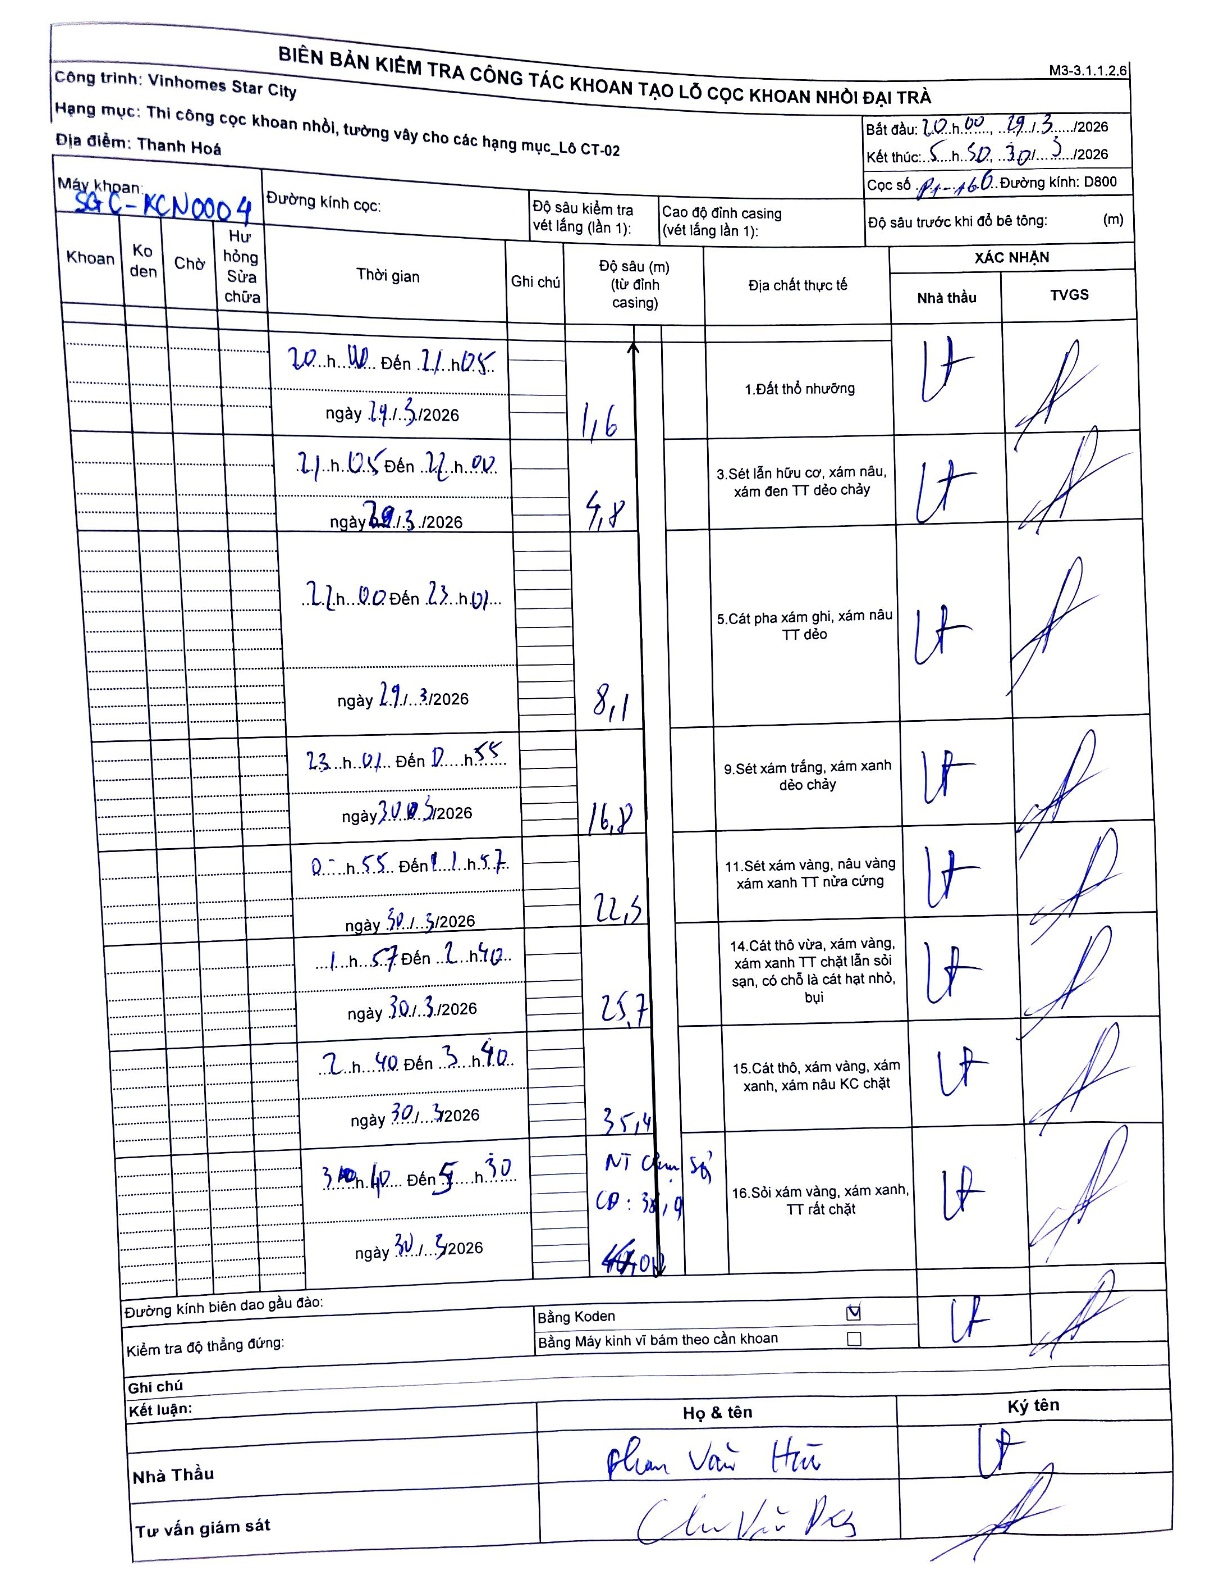 M3-3.1.1.2.6
BIÊN BẢN KIỂM TRA CÔNG TÁC KHOAN TẠO LỖ CỌC KHOAN NHỒI ĐẠI TRÀ
Công trình: Vinhomes Star City
Hạng mục: Thi công cọc khoan nhồi, tường vây cho các hạng mục_Lô CT-02
Địa điểm: Thanh Hoá
Bắt đầu: 20.h.00, 29./.3./2026
Kết thúc: 5.h.50, 30/.3./2026
Cọc số P1-160 Đường kính: D800
Máy khoan: SGC-KCN0004
Đường kính cọc:
Độ sâu kiểm tra vét lắng (lần 1):
Cao độ đỉnh casing (vét lắng lần 1):
Độ sâu trước khi đổ bê tông: (m)
Khoan Ko den Chờ Hư hỏng Sửa chữa Thời gian Ghi chú Độ sâu (m) (từ đỉnh casing) Địa chất thực tế XÁC NHẬN
Nhà thầu TVGS
20...h.00... Đến .21.h05.
ngày 29./.3./2026
1,6
1.Đất thổ nhưỡng
21..h.05 Đến .22.h.00.
ngày 29./.3./2026
4,8
3.Sét lẫn hữu cơ, xám nâu, xám đen TT dẻo chảy
..22h...00 Đến .23..h01...
ngày 29./..3/2026
8,1
5.Cát pha xám ghi, xám nâu TT dẻo
23..h..01. Đến 0....h55
ngày 30.03/2026
16,8
9.Sét xám trắng, xám xanh dẻo chảy
0...h.55. Đến 1.h.57.
ngày 30./..3/2026
22,3
11.Sét xám vàng, nâu vàng xám xanh TT nửa cứng
...1..h..57 Đến ..2..h40..
ngày 30./..3./2026
25,7
14.Cát thô vừa, xám vàng, xám xanh TT chặt lẫn sỏi sạn, có chỗ là cát hạt nhỏ, bụi
..2..h..40 Đến ..3..h40.
ngày 30/...3/2026
35,4
15.Cát thô, xám vàng, xám xanh, xám nâu KC chặt
3 h.40... Đến 5..h.30
ngày 30./...3/2026
NT
16.Sỏi xám vàng, xám xanh, TT rất chặt
Đường kính biên dao gầu đào:
Kiểm tra độ thẳng đứng:
Bằng Koden ☑
Bằng Máy kinh vĩ bám theo cần khoan ☐
Ghi chú
Kết luận:
Họ & tên Ký tên
Nhà Thầu Phan Văn
Tư vấn giám sát Chu Văn